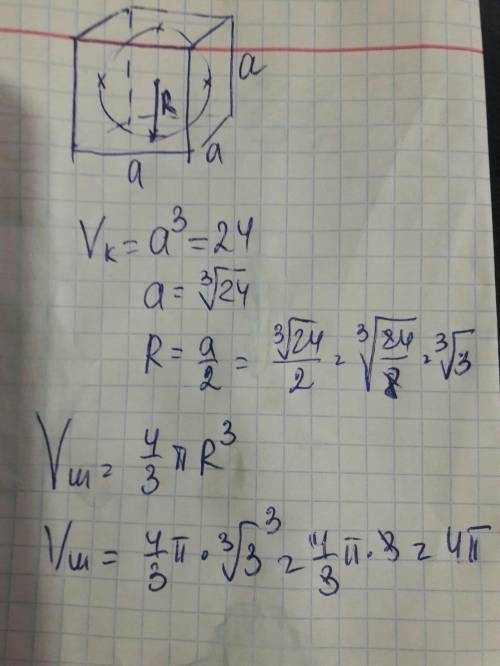 a
R
a
a
Vк = a³ = 24
a = ∛24
R = a/2 = ∛24/2 = ∛(24/8) = ∛3
Vш = 4/3 π R³
Vш = 4/3 π · ∛3³ = 4/3 π · 3 = 4π